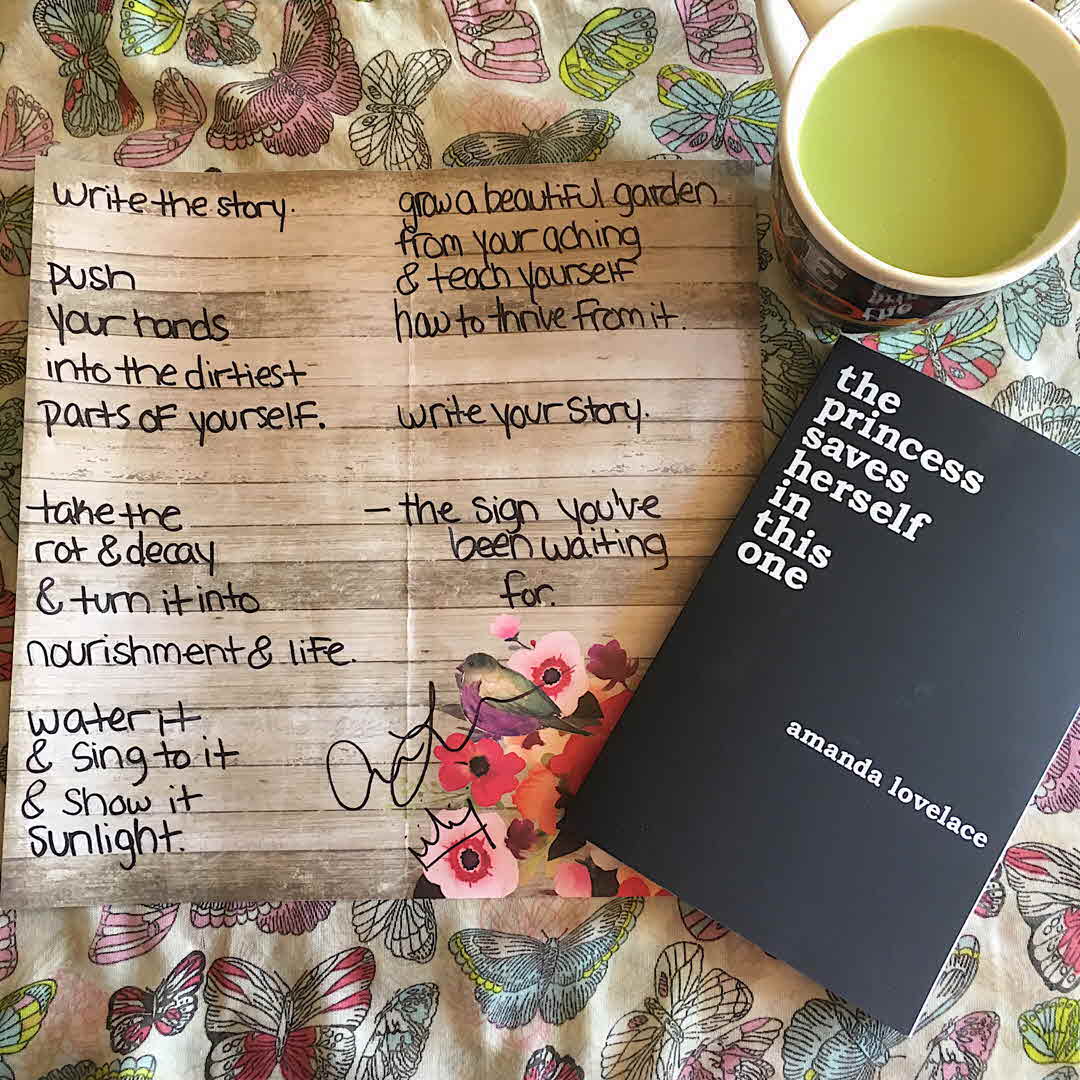 write the story.
push
your hands
into the dirtiest
parts of yourself.
take the
rot & decay
& turn it into
nourishment & life.
water it
& sing to it
& show it
sunlight.
grow a beautiful garden
from your aching
& teach yourself
how to thrive from it.
write your story.
– the sign you've
been waiting
for.
the
princess
saves
herself
in
this
one
amanda lovelace